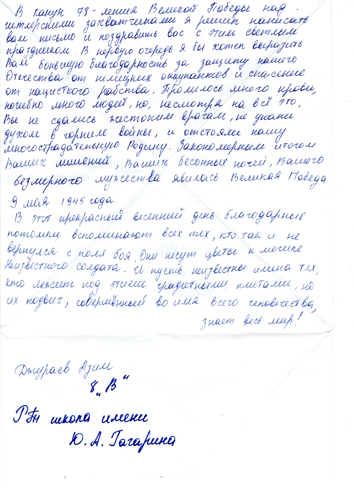 В канун 75-летия Великой Победы над
гитлеровскими захватчиками я решил написать
вам письмо и поздравить вас с этим светлым
праздником. В первую очередь я бы хотел выразить
Вам большую благодарность за защиту нашего
Отечества от немецких оккупантов и спасение
от нацистского рабства. Пролилось много крови,
погибло много людей, но, несмотря на всё это,
Вы не сдались жестоким врагам, не упали
духом в горниле войны, и отстояли нашу
многострадальную Родину. Закономерным итогом
Ваших лишений, Ваших бессонных ночей, Вашего
безмерного мужества явилась Великая Победа
9 мая 1945 года.
В этот прекрасный весенний день благодарные
потомки вспоминают всех тех, кто так и не
вернулся с поля боя. Они несут цветы к могиле
Неизвестного солдата. И пусть неизвестны имена тех,
кто лежит под этими гранитными плитами, но
их подвиг, совершённый во имя всего человечества,
знает весь мир!
Джураев Азим
8 „В"
школа имени
Ю. А. Гагарина